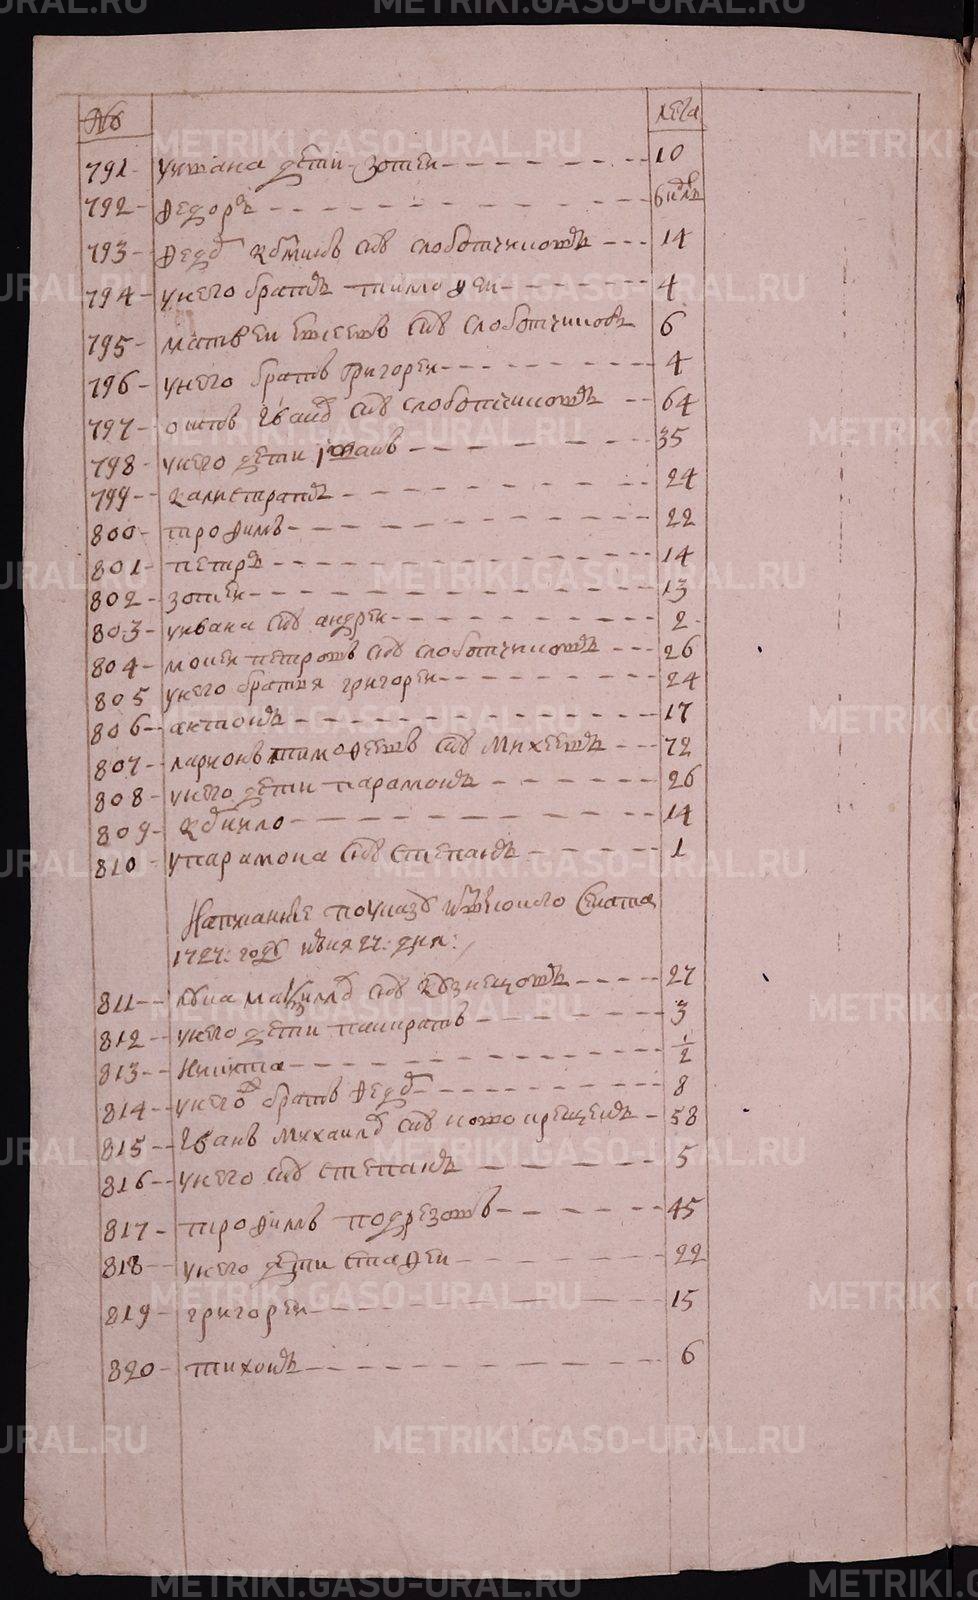 № лета
791 - у ивана дети Зотеи - 10
792 - Федоръ - 6 нд̾ль
793 - Федоръ Козминъ снъ слоботчиковъ - 14
794 - у него братъ тимофеи - 4
795 матвеи снъ слоботчиковъ 6
796 - у него братъ григореи - 4
797 - осипъ Iванов снъ слоботчиковъ - 64
798 - у него дети - 35
799 - калистратъ - 24
800 - трофимъ - 22
801 - петръ - 14
802 - зотеи - 13
803 - у ивана снъ андреи - 2
804 - петровъ снъ слоботчиковъ - 26
805 у него братья григореи - 24
806 - антонъ - 17
807 - ларионъ тимофеевъ снъ михеевъ - 72
808 - у него дети парамонъ - 26
809 - Кирило - 14
810 - у парамона снъ степанъ - 1
Написанные по указу Сената
1727: году июня 27: дня:
811 - лука снъ Кузнецовъ - 27
812 - у него дети панкратъ - 3
813 - Никита - 1/2
814 - у него братъ Федоръ - 8
815 - Iванъ михаиловъ снъ новокрещенъ - 58
816 - у него снъ степанъ - 5
817 - трофимъ подрезовъ - 45
818 - у него дети стафеи - 22
819 - григореи - 15
820 - тихонъ - 6
METRIKI.GASO-URAL.RU